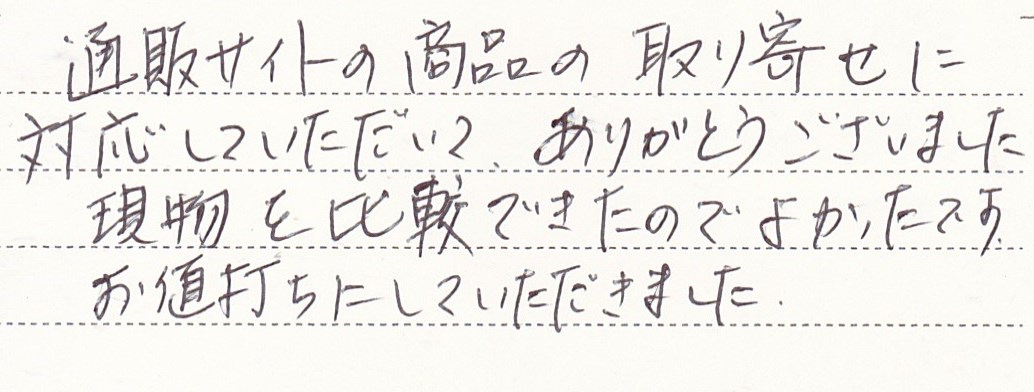 通販サイトの商品の取り寄せに
対応していただいて、ありがとうございました
現物を比較できたのでよかったです。
お値打ちにしていただきました。